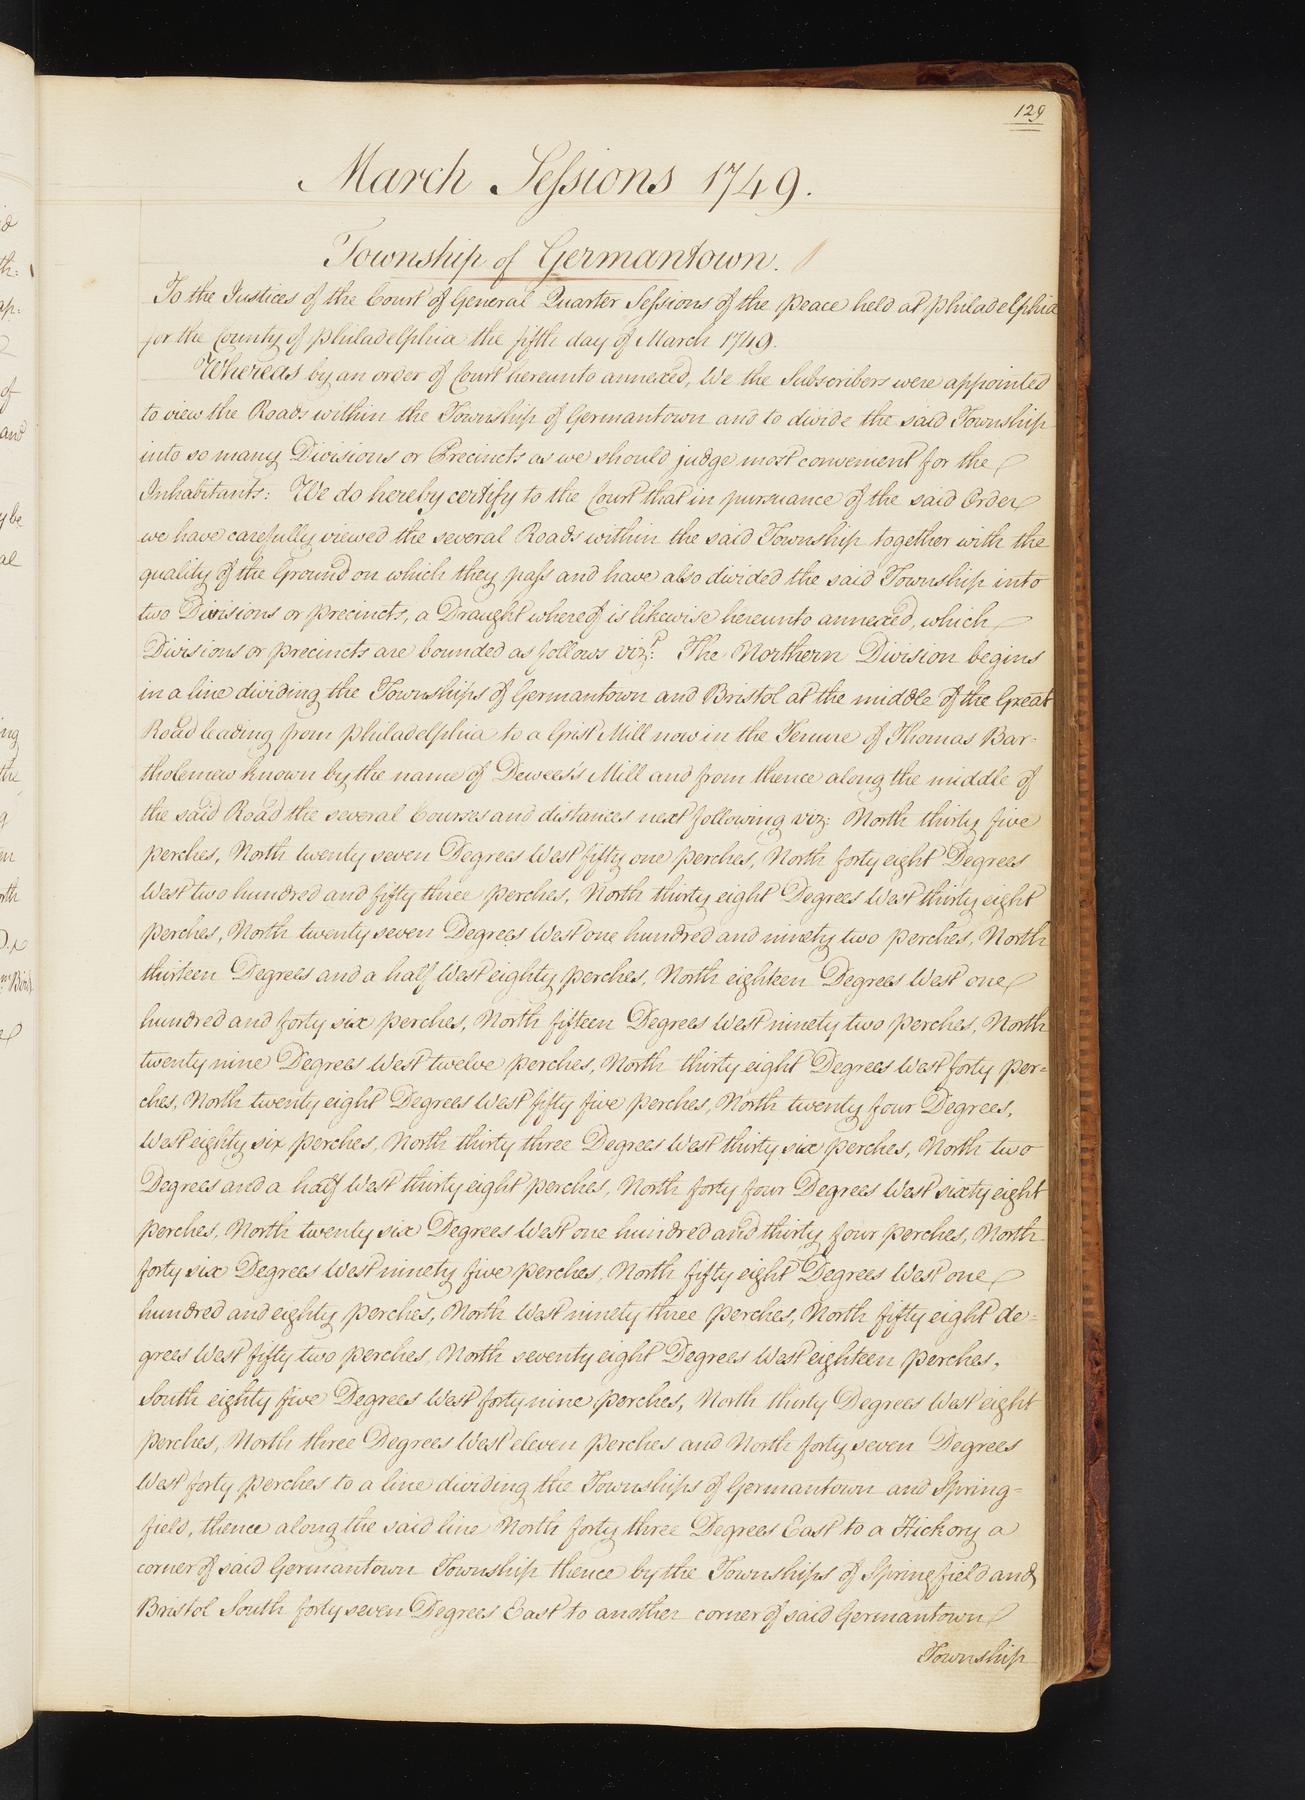 129
March Sessions 1749.
Township of Germantown.
To the Justices of the Court of General Quarter Sessions of the Peace held at Philadelphia
for the County of Philadelphia the fifth day of March 1749.
Whereas by an order of Court hereunto annexed, We the Subscribers were appointed
to view the Roads within the Township of Germantown and to divide the said Township
into so many Divisions or Precincts as we should judge most convenient for the
Inhabitants: We do hereby certify to the Court that in pursuance of the said Order
we have carefully viewed the several Roads within the said Township together with the
quality of the Ground on which they pass and have also divided the said Township into
two Divisions or precincts, a Draught whereof is likewise hereunto annexed, which
Divisions or precincts are bounded as follows vizt: The Northern Division begins
in a line dividing the Townships of Germantown and Bristol at the middle of the Great
Road leading from Philadelphia to a Grist Mill now in the Tenure of Thomas Bar-
tholemew known by the name of Dewees's Mill and from thence along the middle of
the said Road the several Courses and distances next following viz: North thirty five
perches, North twenty seven Degrees West fifty one perches, North forty eight Degrees
West two hundred and fifty three perches, North thirty eight Degrees West thirty eight
perches, North twenty seven Degrees West one hundred and ninety two perches, North
thirteen Degrees and a half West eighty perches, North eighteen Degrees West one
hundred and forty six perches, North fifteen Degrees West ninety two perches, North
twenty nine Degrees West twelve perches, North thirty eight Degrees West forty per-
ches, North twenty eight Degrees West fifty five perches, North twenty four Degrees,
West eighty six perches, North thirty three Degrees West thirty six perches, North two
Degrees and a half West thirty eight perches, North forty four Degrees West sixty eight
perches, North twenty six Degrees West one hundred and thirty four perches, North
forty six Degrees West ninety five perches, North fifty eight Degrees West one
hundred and eighty perches, North West ninety three perches, North fifty eight de-
grees West fifty two perches, North seventy eight Degrees West eighteen perches,
South eighty five Degrees West forty nine perches, North thirty Degrees West eight
perches, North three Degrees West eleven perches and North forty seven Degrees
West forty perches to a line dividing the Townships of Germantown and Spring-
field, thence along the said line North forty three Degrees East to a Hickory a
corner of said Germantown Township thence by the Townships of Springfield and
Bristol South forty seven Degrees East to another corner of said Germantown
Township